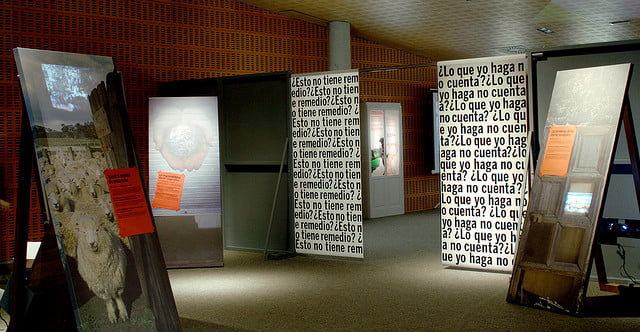 ¿Esto no tiene rem
edio?¿Esto no tien
e remedio?¿Esto n
o tiene remedio? ¿
Esto no tiene rem
edio?¿Esto no tien
e remedio? ¿Esto n
o tiene remedio? ¿
Esto no tiene rem
edio?¿Esto no tien
e remedio?¿Esto n
o tiene remedio? ¿
Esto no tiene rem
edio?¿Esto no tien
e remedio?¿Esto n
o tiene remedio? ¿
Esto no tiene rem
¿Lo que yo haga n
o cuenta?¿Lo que
yo haga no cuent
a?¿Lo que yo haga
no cuenta? ¿Lo qu
e yo haga no cuen
ta?¿Lo que yo hag
a no cuenta?¿lo
que yo haga no cu
enta? ¿Lo que yo
haga no cuenta?
¿Lo que yo haga
no cuenta? ¿Lo qu
e yo haga no cuent
a? ¿Lo que yo h
a no cuenta?¿L
ue yo haga no